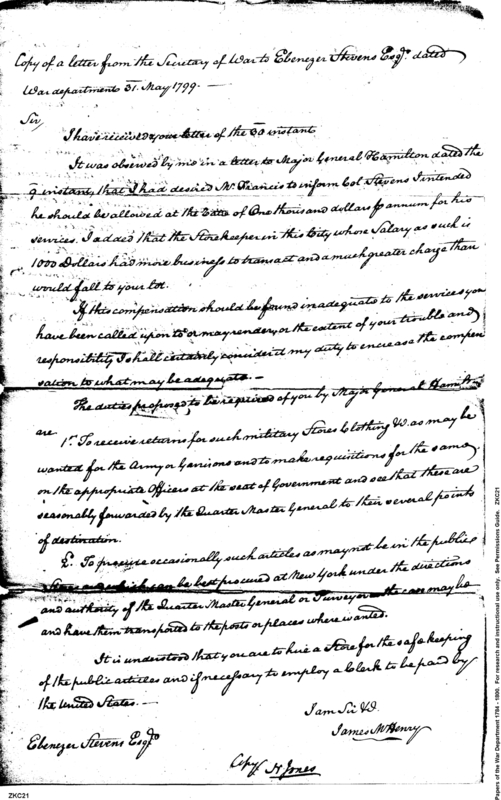 Copy of a letter from the Secretary of War to Ebenezer Stevens Esqr. dated
War department 31. May 1799. —
Sir,
I have received your letter of the 30 instant
It was observed by me in a letter to Major General Hamilton dated the
9 instant, that I had desired Mr. Francis to inform Col Stevens I intended
he should be allowed at the Rate of One thousand dollars annum for his
services. I added that the Storekeeper in this City whose Salary as such is
1000 Dollars had more business to transact and a much greater charge than
would fall to your lot.
If this compensation should be found inadequate to the services you
have been called upon to or may render, or the extent of your trouble and
responsibility I shall certainly consider it my duty to encrease the compen
sation to what may be adequate. —
The duties proposed to be required of you by Major General Hamilton
are
1st. To receive returns for such military Stores Clothing &c. as may be
wanted for the Army or Garrisons and to make requisitions for the same
on the appropriate Officers at the seat of Government and see that these are
seasonably forwarded by the Quarter Master General to their several points
of destination.
2d. To procure occasionally such articles as may not be in the public
Stores and which can be best procured at New York under the directions
and authority of the Quarter Master General or Purveyor as the case may be
and have them transported to the posts or places where wanted.
It is understood that you are to hire a Store for the safe keeping
of the public articles and if necessary to employ a Clerk to be paid by
the United States. —
I am Sir &c.
James McHenry
Ebenezer Stevens Esqr.
Copy N Jones
ZKC21
Papers of the War Department 1784 - 1800. For research and instructional use only. See Permissions Guide. ZKC21